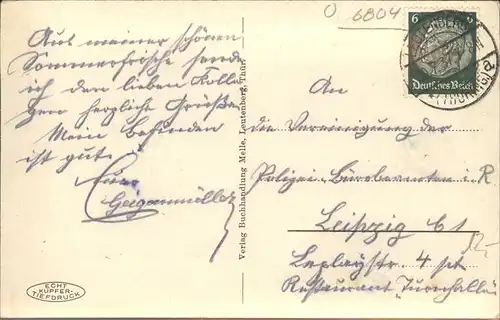 O 6804
Aus meiner schönen
Sommerfrische sende
ich den lieben Kolle-
gen herzliche Grüße.
Mein Befinden
ist gut.
Euer
Geigenmüller
Verlag Buchhandlung Melle, Leutenberg, Thür.
ECHT
KUPFER-
TIEFDRUCK
6 6
Deutsches Reich
(THÜRING.) a
An
die Vereinigung der
Polizei Bürobeamten i. R
Leipzig C1
4
Restaurant "Turnhalle"